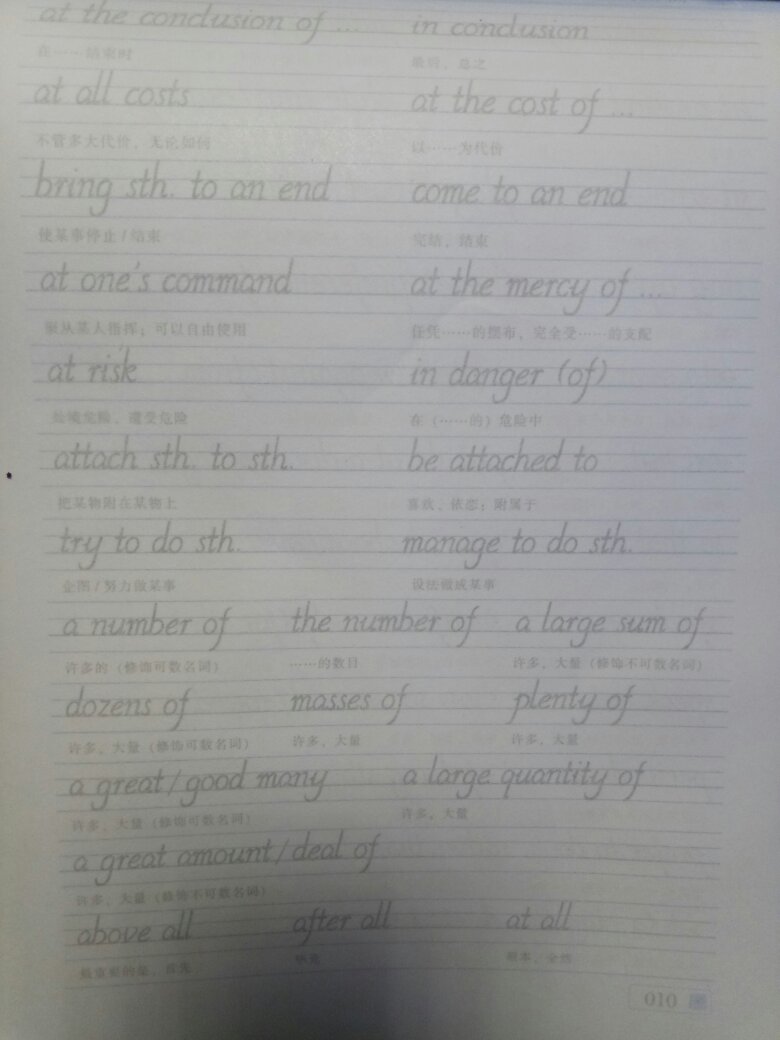 at the conclusion of ... in conclusion
在……结束时 最后，总之
at all costs at the cost of ...
不管多大代价，无论如何 以……为代价
bring sth. to an end come to an end
使某事停止/结束 完结，结束
at one's command at the mercy of ...
服从某人指挥；可以自由使用 任凭……的摆布，完全受……的支配
at risk in danger (of)
处境危险，遭受危险 在（……的）危险中
attach sth. to sth. be attached to
把某物附在某物上 喜欢，依恋；附属于
try to do sth. manage to do sth.
企图/努力做某事 设法做成某事
a number of the number of a large sum of
许多的（修饰可数名词） ……的数目 许多，大量（修饰不可数名词）
dozens of masses of plenty of
许多，大量（修饰可数名词） 许多，大量 许多，大量
a great/good many a large quantity of
许多，大量（修饰可数名词） 许多，大量
a great amount/deal of
许多，大量（修饰不可数名词）
above all after all at all
最重要的是，首先 毕竟 根本，全然
010